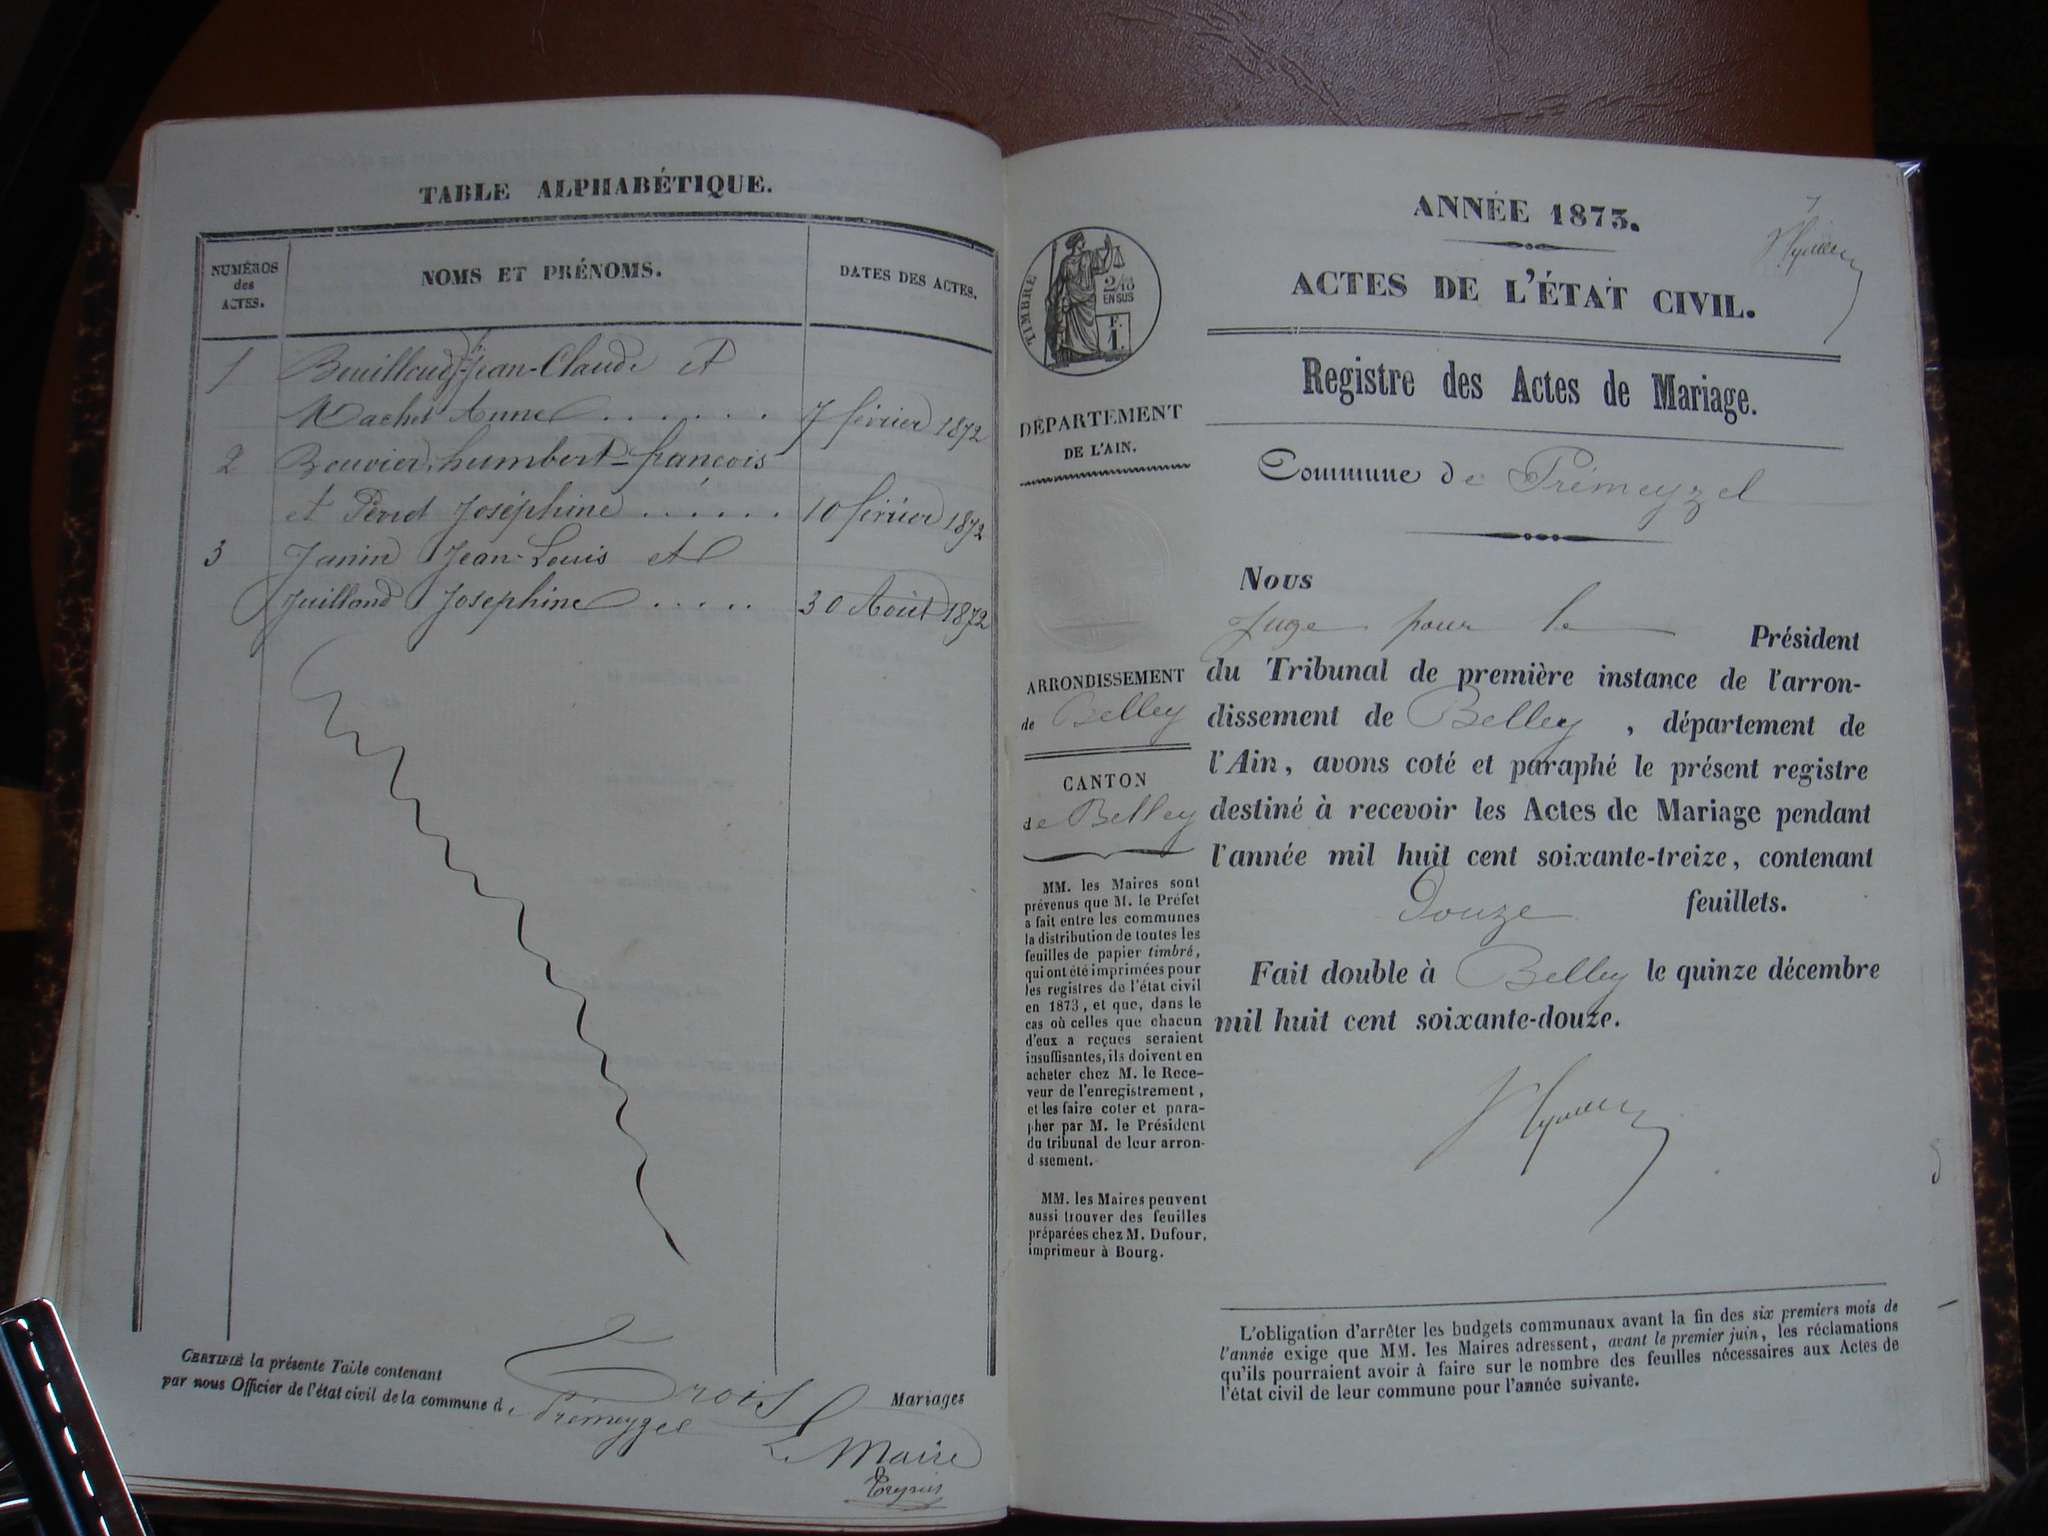 TABLE ALPHABÉTIQUE.
NUMÉROS des ACTES.
NOMS ET PRÉNOMS.
DATES DES ACTES.
1 Bouilloud Jean-Claude et
Machet Anne . . . . . . 7 février 1872
2 Bouvier, humbert-françois
et Perret Joséphine . . . . . . 10 février 1872
3 Janin Jean-Louis et
Juilland Joséphine . . . . . 30 Août 1872
CERTIFIÉ la présente Table contenant Trois Mariages
par nous Officier de l'état civil de la commune de Prémeyzel
Le Maire
ANNÉE 1873.
ACTES DE L'ÉTAT CIVIL.
Registre des Actes de Mariage.
Commune de Prémeyzel
TIMBRE
2/10
EN SUS
F.
1.
DÉPARTEMENT
DE L'AIN.
ARRONDISSEMENT
de Belley
CANTON
de Belley
MM. les Maires sont
prévenus que M. le Préfet
a fait entre les communes
la distribution de toutes les
feuilles de papier timbré,
qui ont été imprimées pour
les registres de l'état civil
en 1873, et que, dans le
cas où celles que chacun
d'eux a reçues seraient
insuffisantes, ils doivent en
acheter chez M. le Rece-
veur de l'enregistrement,
et les faire coter et para-
pher par M. le Président
du tribunal de leur arron-
d ssement.
MM. les Maires peuvent
aussi trouver des feuilles
préparées chez M. Dufour,
imprimeur à Bourg.
Nous
Juge pour le Président
du Tribunal de première instance de l'arron-
dissement de Belley , département de
l'Ain, avons coté et paraphé le présent registre
destiné à recevoir les Actes de Mariage pendant
l'année mil huit cent soixante-treize, contenant
Douze feuillets.
Fait double à Belley le quinze décembre
mil huit cent soixante-douze.
L'obligation d'arrêter les budgets communaux avant la fin des six premiers mois de
l'année exige que MM. les Maires adressent, avant le premier juin, les réclamations
qu'ils pourraient avoir à faire sur le nombre des feuilles nécessaires aux Actes de
l'état civil de leur commune pour l'année suivante.